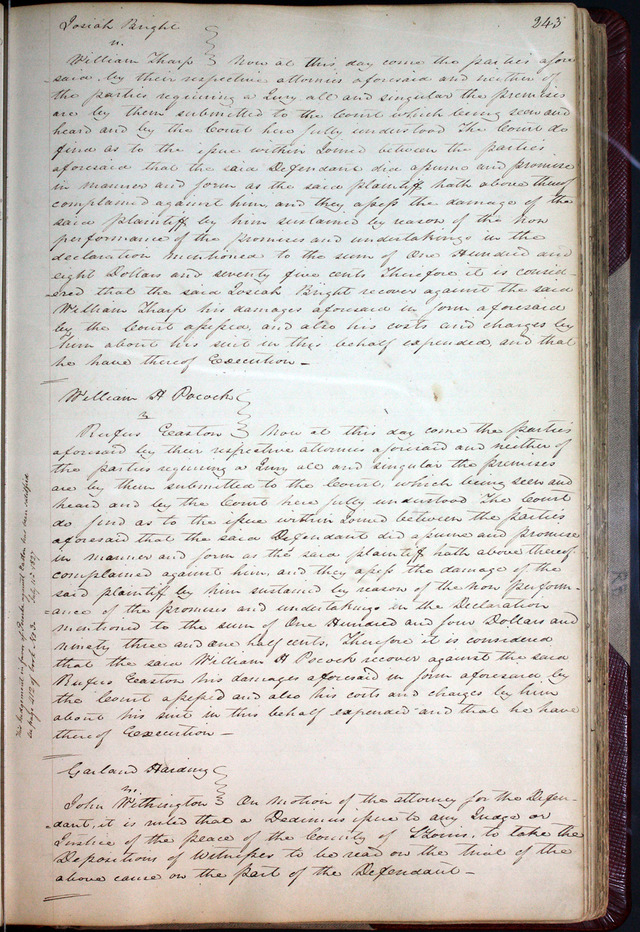 243
Josiah Bright
vs.
William Tharp } Now at this day come the parties afore
said, by their respective attornies aforesaid and neither of
the parties requiring a Jury all and singular the premises
are by them submitted to the Court which being seen and
heard and by the Court here fully understood The Court do
find as to the issue within Joined between the parties
aforesaid that the said Defendant did assume and promise
in manner and form as the said plaintiff hath above thereof
complained against him, and they assess the damage of the
said plaintiff by him sustained by reason of the non
performance of the promises and undertakings in the
declaration mentioned to the sum of One Hundred and
eight Dollars and seventy five cents Therefore it is consid-
-ered that the said Josiah Bright recover against the said
William Tharp his damages aforesaid in form aforesaid
by the Court assessed, and also his costs and charges by
him about his suit in this behalf expended, and that
he have thereof Execution –
William H Pocock
vs
Rufus Easton } Now at this day come the parties
aforesaid by their respective attornies aforesaid and neither of
the parties requiring a Jury all and singular the premises
are by them submitted to the Court, which being seen and
heard and by the Court here fully understood The Court
do find as to the issue within Joined between the parties
aforesaid that the said Defendant did assume and promise
in manner and form as the said plaintiff hath above thereof
complained against him, and they assess the damage of the
said plaintiff by him sustained by reason of the non perform-
-ance of the promises and undertakings in the Declaration
mentioned to the sum of One Hundred and four Dollars and
ninety three and one half cents, Therefore it is considered
that the said William H Pocock recover against the said
Rufus Easton his damages aforesaid in form aforesaid by
the Court assessed and also his costs and charges by him
about his suit in this behalf expended and that he have
thereof Execution –
This Judgement in favor of Pocock against Easton has been satisfied
as per of book No 3. July 11th 1827
Garland Harding
vs.
John Withington } On motion of the attorney for the Defen-
-dant, it is ruled that a Dedimus issue to any Judge or
Justice of the peace of the County of St Louis, to take the
Depositions of Witnesses to be read on the trial of the
above cause on the part of the Defendant –